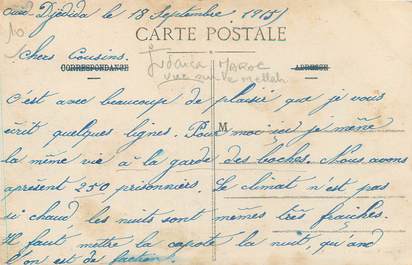 Oued Djédida le 18 Septembre 1915
CARTE POSTALE
chers Cousins.
CORRESPONDANCE
ADRESSE
Judaica MAROC
vue sur le Mellah
C'est avec beaucoup de plaisir que je vous
écrit quelques lignes. Pour moi ici je mène
M
la même vie à la garde des boches. Nous avons
aprésent 250 prisonniers. Le climat n'est pas
si chaud les nuits sont mêmes très fraîches.
Il faut mettre la capote la nuit, quand
l'on est de faction.